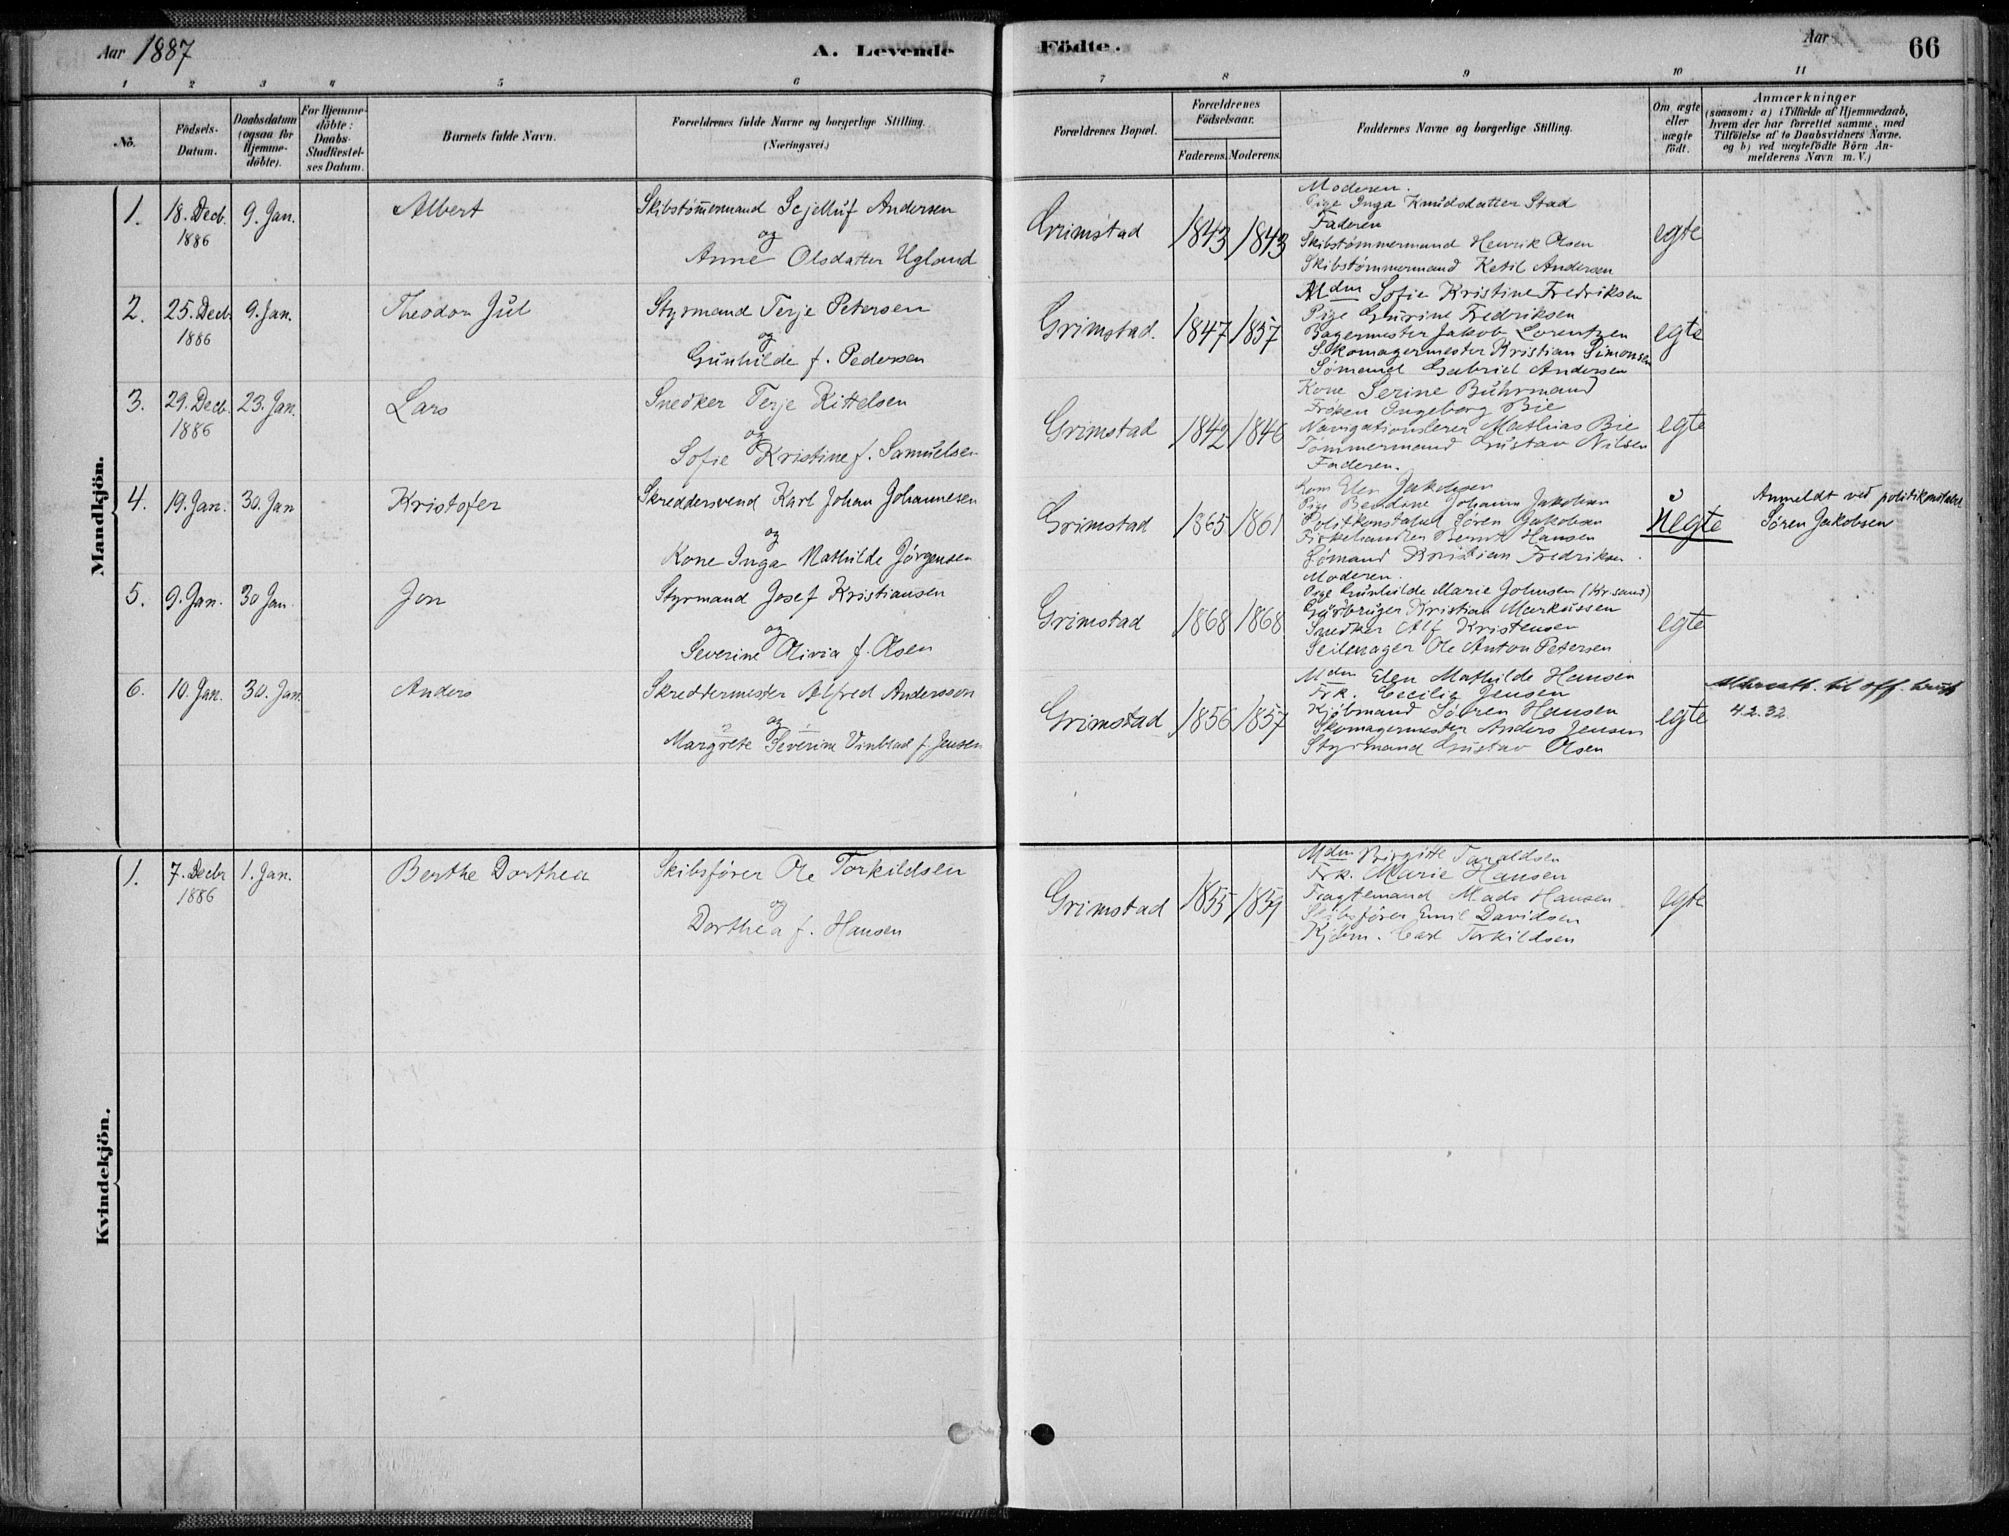 Aar 1887
A. Levende Födte.
Aar
66
1 2 3 4 5 6 7 8 9 10 11
No.
Födsels-Datum.
Daabsdatum (ogsaa for Hjemme-döbte).
For Hjemme-döbte: Daabs-Stadfæstel-ses Datum.
Barnets fulde Navn.
Forældrenes fulde Navne og borgerlige Stilling. (Næringsvei.)
Forældrenes Bopæl.
Forældrenes Födselsaar.
Faderens. Moderens.
Faddernes Navne og borgerlige Stilling.
Om ægte eller uægte født.
Anmærkninger (saasom: a) i Tilfælde af Hjemmedaab, hvem der har forrettet samme, med Tilföielse af to Daabsvidners Navne, og b) ved uægtefödte Börn An-melderens Navn m. V.)
Mandkjön.
1. 18. Decb. 1886 9. Jan. Albert
Skibstømmermand Andersen
og
Anne Olsdatter Ugland
Grimstad 1843 1843
Moderen.
Pige Inga Knudsdatter Stad
Faderen
Skibstømmermand Henrik Olsen
Skibstømmermand Ketil Andersen
egte
2. 25. Decb. 1886 9. Jan. Theodor Jul
Styrmand Terje Petersen
og
Gunhilde f. Pedersen
Grimstad. 1847 1857
Mdm Sofie Kristine Fredriksen
Pige Gurine Fredriksen
Bagermester Jakob Lorentzen
Skomagermester Kristian Simonsen
Sømand Gabriel Andersen
egte
3. 29. Decb. 1886 23. Jan. Lars
Snedker Terje Kittelsen
og
Sofie Kristine f. Samuelsen
Grimstad 1842 1846
Kone Serine Buhrmand
Frøken Ingeborg Bie
Navigationslerer Mathias Bie
Tømmermand Gustav Nilsen
Faderen.
egte
4. 19. Jan. 30. Jan Kristofer
Skreddersvend Karl Johan Johannesen
og
Kone Inga Mathilde Jörgensen
Grimstad 1865 1861
Elen Jakobsen
Pige Johanne Jakobsen
Politkonstabel Søren Jakobsen
Fiskehandler Bernt Hansen
Sømand Kristian Fredriksen.
uegte
Anmeldt ved politikonstabel
Søren Jakobsen
5. 9. Jan. 30 Jan. Jon
Styrmand Josef Kristiansen
og
Severine Olivia f. Olsen
Grimstad 1868 1868
Moderen.
Pige Gunhilde Marie Johnsen (Kr.sand)
Gårbruger Kristian Markussen
Snedker Alf Kristensen
Seilmager Ole Anton Petersen
egte
6. 10. Jan. 30. Jan Anders
Skreddermester Alfred Andersson
og
Margrete Severine Vinblad f. Jensen
Grimstad 1856 1857
Mdm Elen Mathilde Hansen
Frk. Cecilia Jensen
Kjøbmand Søren Hansen
Skomagermester Anders Jensen
Styrmand Gustav Olsen
egte
til off. bruk
4.2.32.
Kvindekjön.
1. 7. Decbr 1886 1. Jan. Berthe Dorthea
Skibsfører Ole Torkildsen
og
Dorthea f. Hansen
Grimstad 1855 1859
Mdm Birgitte Taraldsen
Frk. Marie Hansen
Fragtemand Mads Hansen
Skibsfører Emil Davidsen
Kjøbm. Carl Torkildsen
egte